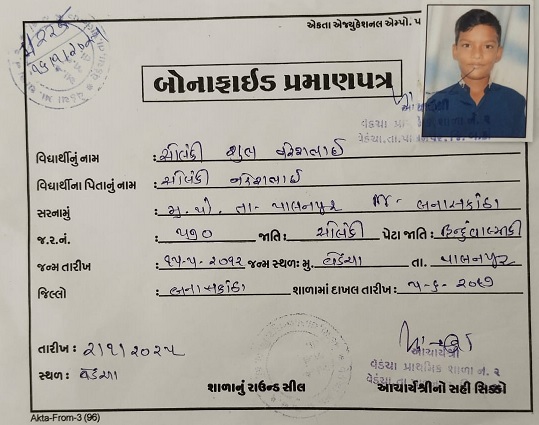 એકતા એજ્યુકેશનલ એમ્પો. પ
બોનાફાઈડ પ્રમાણપત્ર
આચાર્યશ્રી
વેડંચા પ્રાથમિક શાળા નં. ૨
વિદ્યાર્થીનું નામ : સોલંકી શુભ નરેશભાઈ
વિદ્યાર્થીના પિતાનું નામ : સોલંકી નરેશભાઈ
સરનામું : મુ. પો. તા- પાલનપુર જિ- બનાસકાંઠા
જ.ર.નં. : ૫૧૦ જાતિ : સોલંકી પેટા જાતિ : હિન્દુવાલ્મીકી
જન્મ તારીખ : ૧૫-૫-૨૦૧૨ જન્મ સ્થળ: મુ. વેડંચા તા. પાલનપુર
જિલ્લો : બનાસકાંઠા શાળામાં દાખલ તારીખ :
તારીખ : ૨/૧/૨૦૨૫
સ્થળ : વેડંચા
આચાર્યશ્રી
વેડંચા પ્રાથમિક શાળા નં. ૨
શાળાનું રાઉન્ડ સીલ આચાર્યશ્રીનો સહી સિક્કો
Akta-From-3 (96)